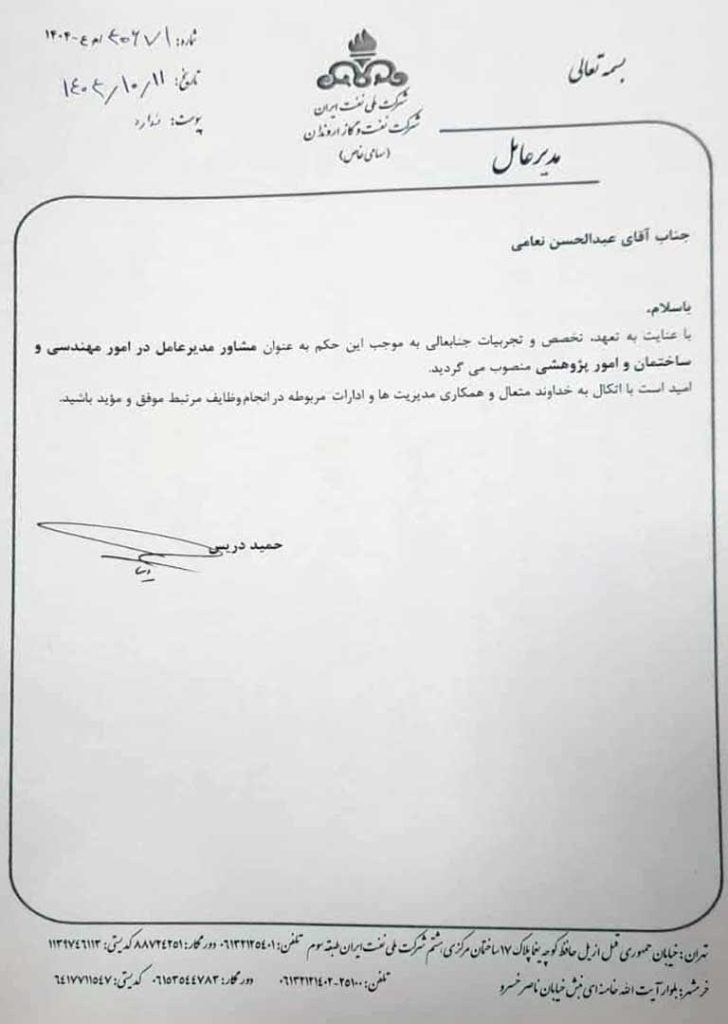 بسمه تعالی
شرکت ملی نفت ایران
شرکت نفت و گاز اروندان
(سهامی خاص)
شماره: ۳۰۶۷۱ ام ع-۱۴۰۴
تاریخ: ۱۴۰۴/۱۰/۱۱
پیوست: ندارد
مدیرعامل
جناب آقای عبدالحسن نعامی
باسلام،
با عنایت به تعهد، تخصص و تجربیات جنابعالی به موجب این حکم به عنوان مشاور مدیرعامل در امور مهندسی و
ساختمان و امور پژوهشی منصوب می گردید.
امید است با اتکال به خداوند متعال و همکاری مدیریت ها و ادارات مربوطه در انجام وظایف مرتبط موفق و مؤید باشید.
حمید دریس
تهران: خیابان جمهوری قبل از پل حافظ کوچه یغما پلاک ۱۷ ساختمان مرکزی هشتم شرکت ملی نفت ایران طبقه سوم تلفن: ۰۶۱۳۲۱۲۵۴۰۱ دورنگار: ۸۸۷۲۴۲۵۱ کدپستی: ۱۱۳۹۷۴۶۱۱۳
خرمشهر: بلوار آیت الله خامنه ای نبش خیابان ناصر خسرو تلفن: ۲۵۱۰۰-۰۶۱۳۲۱۲۱۴۰۲ دورنگار: ۰۶۱۵۳۵۴۴۷۸۳ کدپستی: ۶۴۱۷۷۱۱۵۴۷